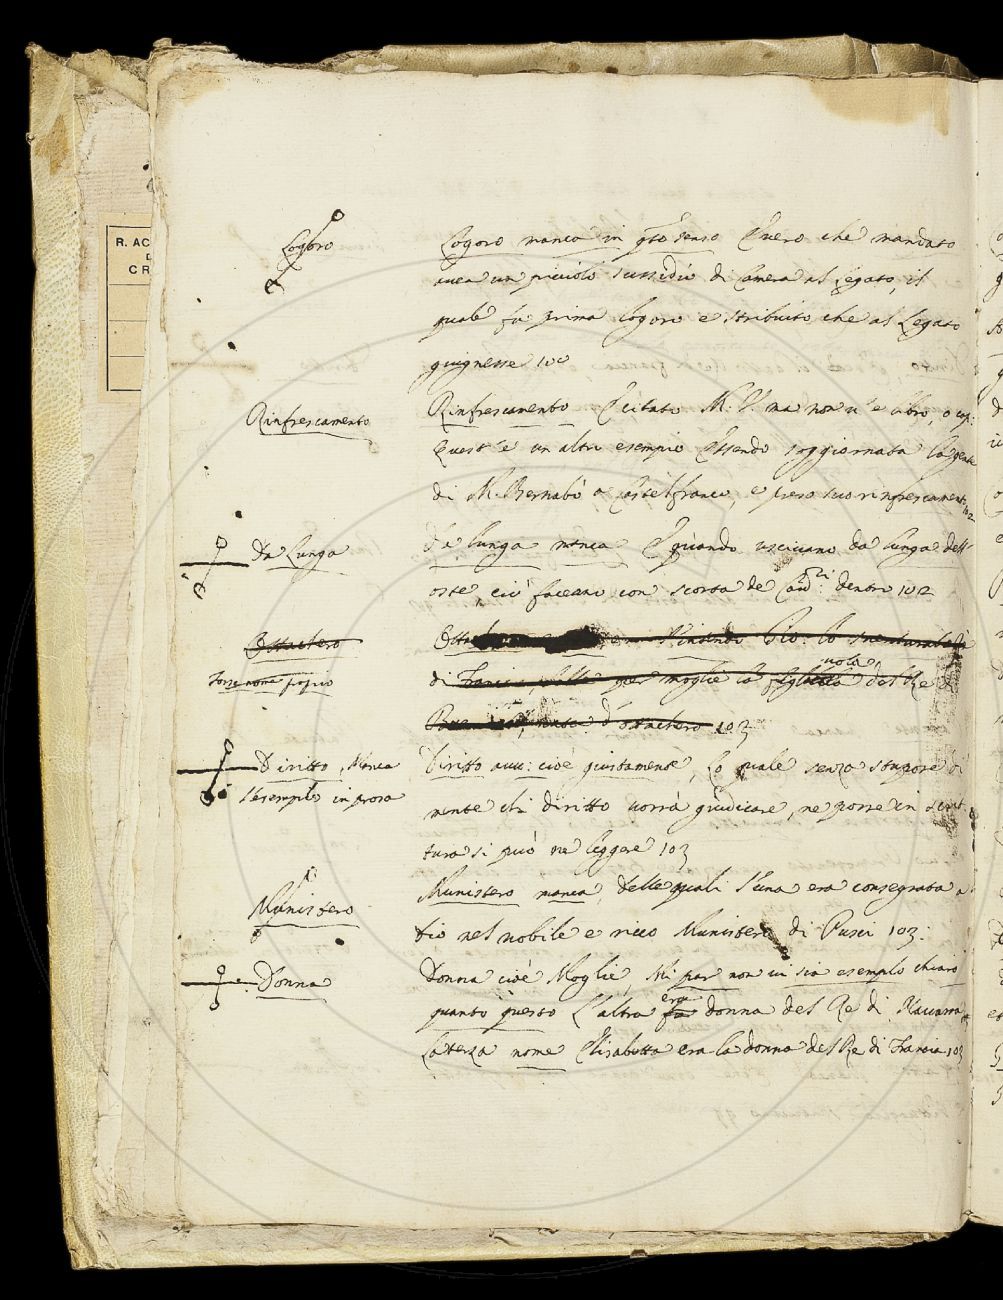 R. AC
D
CR
Logoro
Logoro manca in qto senso E vero che mandato
avea un picciolo sussidio di Camera al Legato, il
quale fu prima logoro e stribuito che al Legato
giugnesse 100
Rinfrescamento
Rinfrescamento E citato M. V. ma non v'è libro, o cap:
Quest'è un altro esempio Essendo soggiornata la gente
di M. Bernabò a Castelfranco, e preso suo rinfrescamento 102
Da Lunga
Da lunga manca E quando uscivano da lunga dell'
oste, ciò faceano con scorta de Cardli dentro 102
Ottachero
forse nome proprio
di Franc per moglie la figliuola del Re
nata d'Ottachero 103
Diritto, Manca
l'esemplo in prosa
Diritto avv: cioè giustamente, Lo quale senza stupore di
mente chi diritto vorrà giudicare, ne porre in scrit
tura si può ne leggere 103
Munistero
Munistero manca, Delle quali l'una era consegrata a
Dio nel nobile e ricco Munistero di Pusci 103:
Donna
Donna cioè Moglie, Mi par non vi sia esemplo chiaro
quanto questo L'altra fu era donna del Re di Navarra
La terza nome Elisabetta era la donna del Re di Francia 103